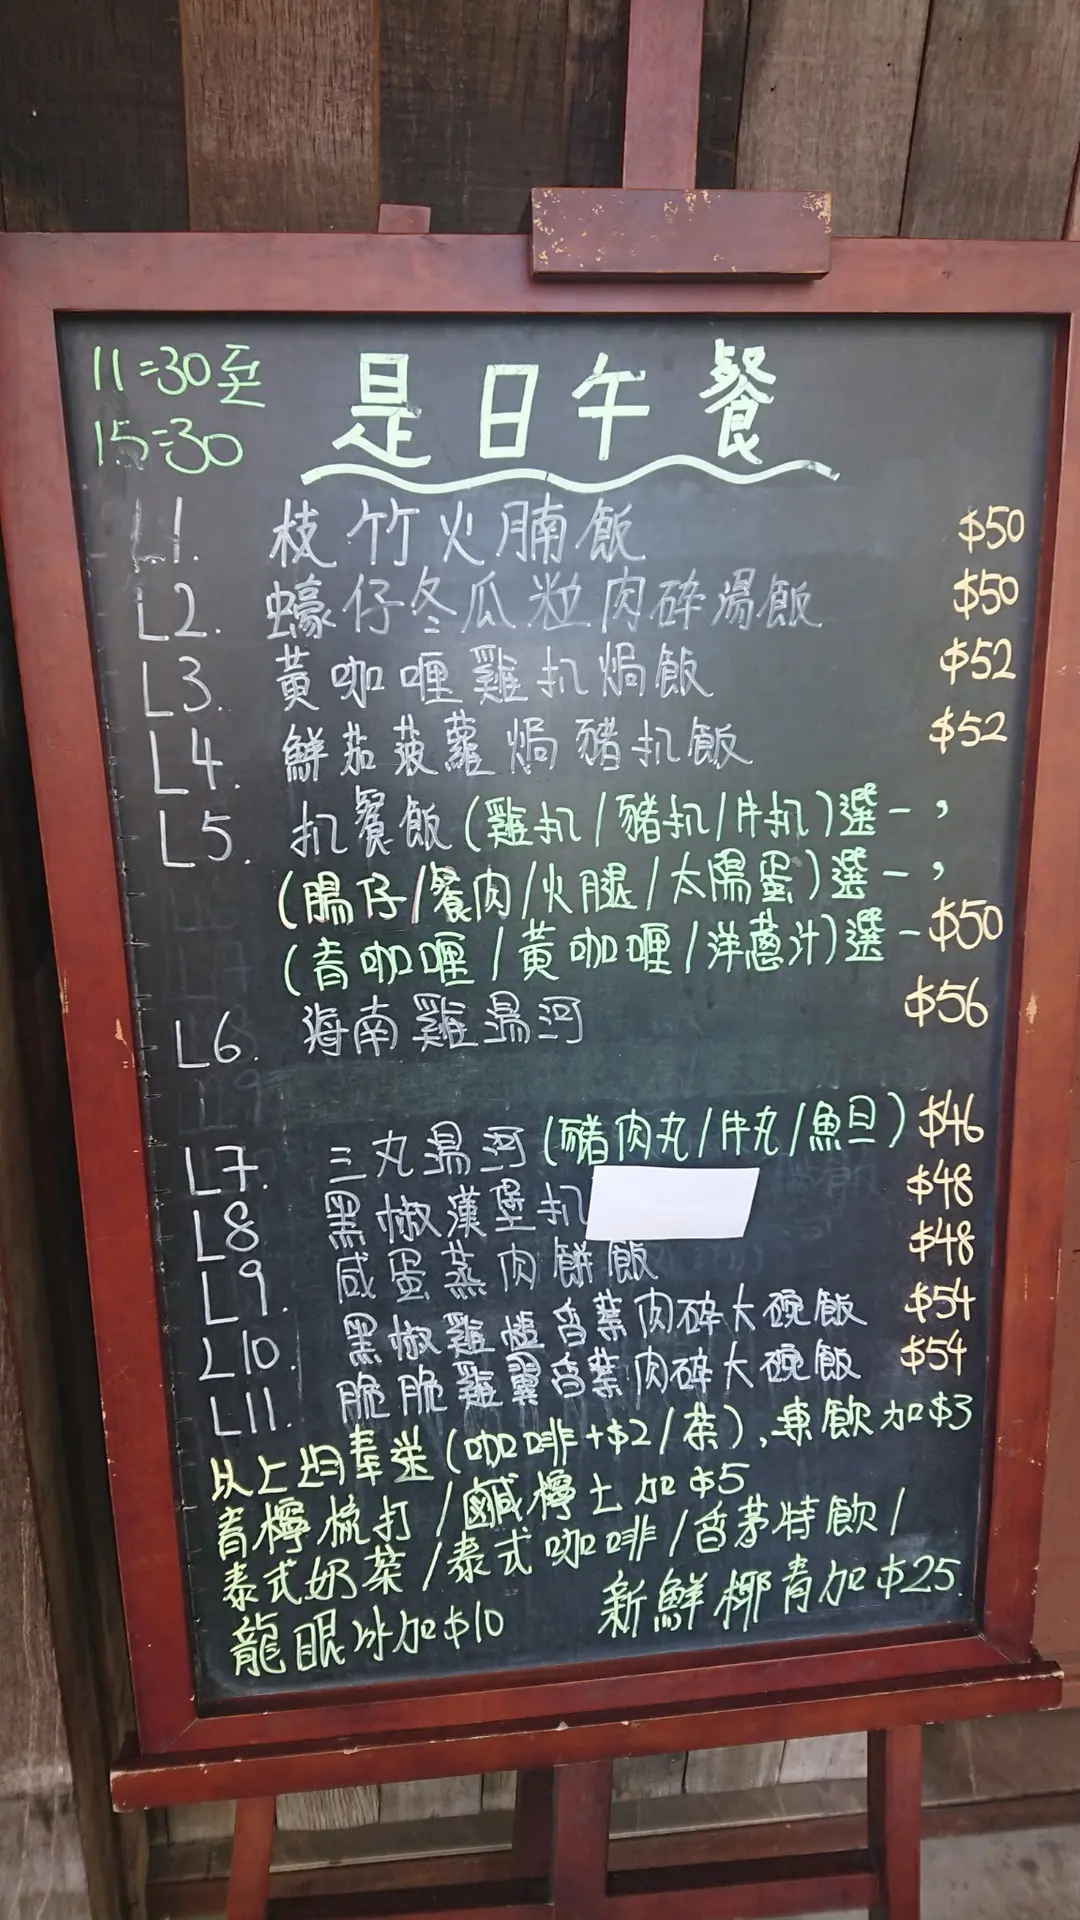 11:30至
15:30
是日午餐
L1. 枝竹火腩飯 $50
L2. 蠔仔冬瓜粒肉碎湯飯 $50
L3. 黃咖喱雞扒焗飯 $52
L4. 鮮茄菠蘿焗豬扒飯 $52
L5. 扒餐飯(雞扒/豬扒/牛扒)選一,
(腸仔/餐肉/火腿/太陽蛋)選一,
(青咖喱/黃咖喱/洋蔥汁)選一 $50
L6. 海南雞湯河 $56
L7. 三丸湯河(豬肉丸/牛丸/魚旦) $46
L8 黑椒漢堡扒 $48
L9. 咸蛋蒸肉餅飯 $48
L10. 黑椒雞槌香葉肉碎大碗飯 $54
L11. 脆脆雞翼香葉肉碎大碗飯 $54
以上均奉送(咖啡+$2/茶),凍飲加$3
青檸梳打/鹹檸七加$5
泰式奶茶/泰式咖啡/香茅特飲/
龍眼冰加$10 新鮮椰青加$25